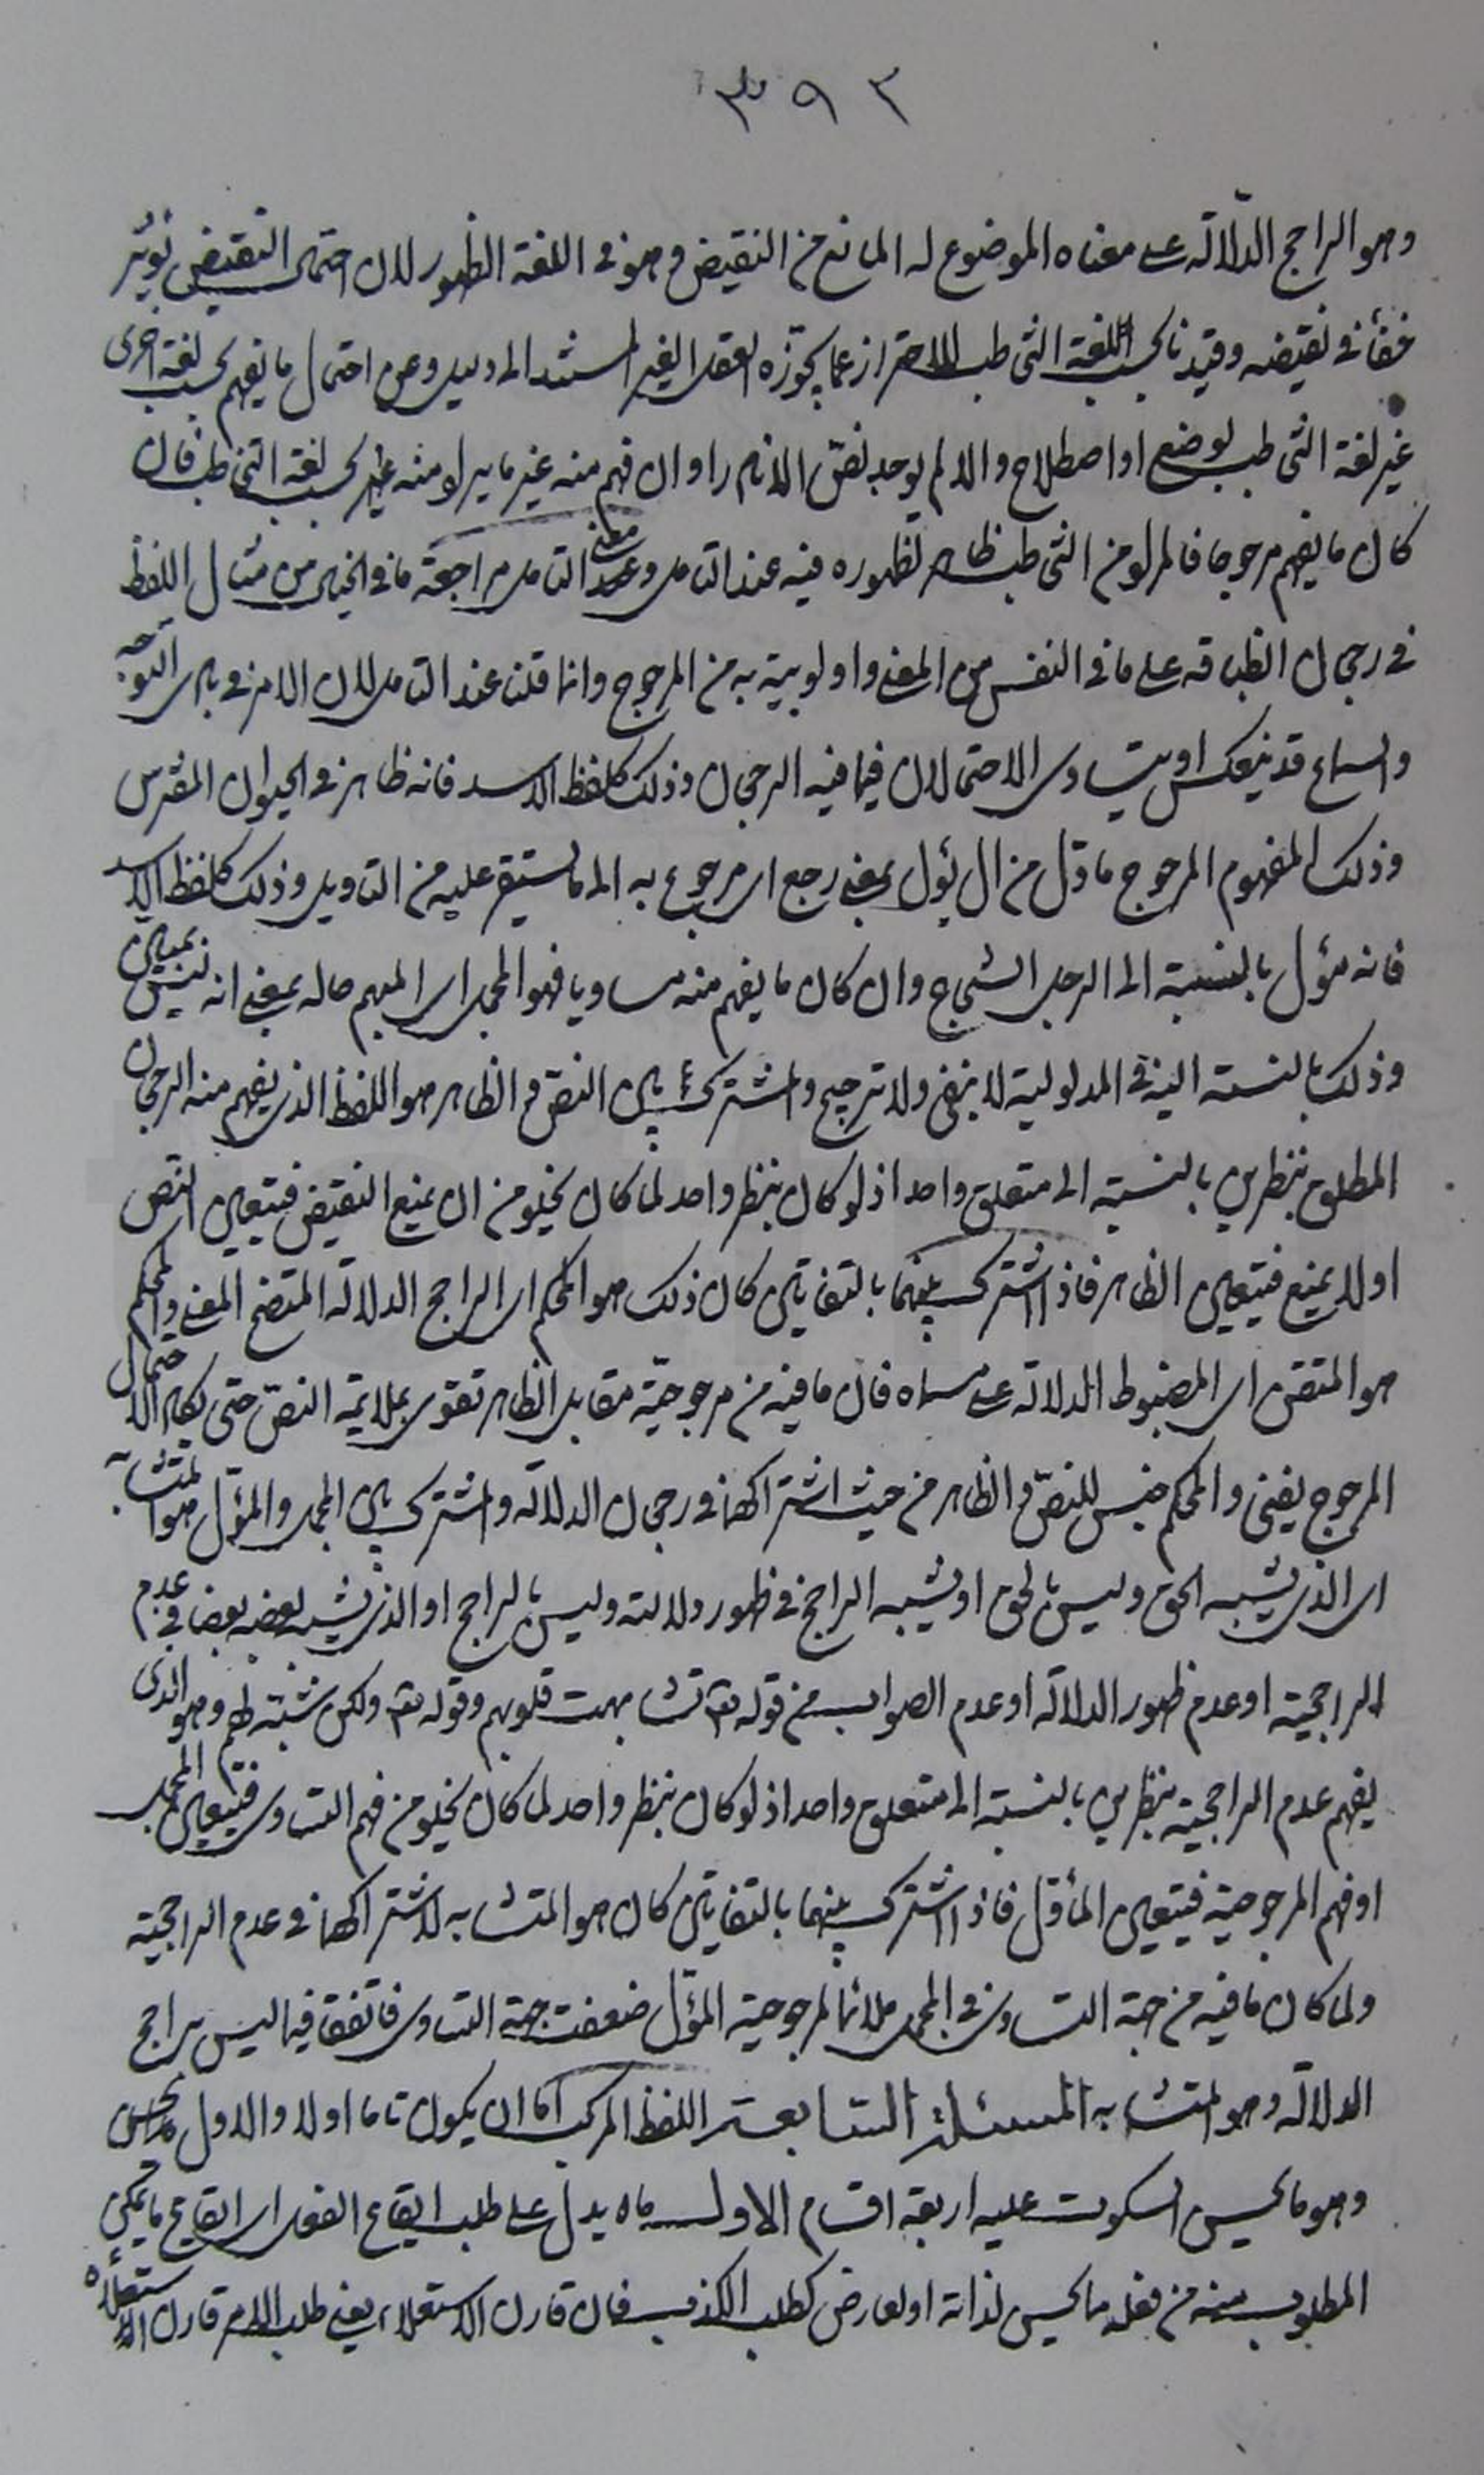 ٣٩٣
وهو الراجح الدّلالة على معناه الموضوع له المانع من النقيض وهو في اللغة الظهور لان احتمال النقيض يؤثر
خفاء في نقيضه وقيدنا بحسب اللغة التخاطب للاحتراز عما يجوّزه العقل الغير المستند الى دليل وعن احتمال ما يفهم بحسب لغة اخرى
غير لغة التخاطب بوضع او اصطلاح والا لم يوجد نصّ الا نادرا وان فهم منه غير ما يراد منه بحسب لغة التخاطب فان
كان ما يفهم مرجوحا فالمراد من التخاطب ظاهر لظهوره فيه عند التأمل ومعنى التأمل مراجعة ما في الخيال من مثال اللفظ
في رجحان انطباقه على ما في النفس من المعنى واولوبيته به من المرجوح وانما قلنا عند التأمل لان الامر في بادى التوجّه
والسماع قد ينعكس او يتساوى الاحتمالان فيما فيه الرجحان وذلك كلفظ الاسد فانه ظاهر في الحيوان المفترس
وذلك المفهوم المرجوح مأوّل من ال يؤل بمعنى رجع اى مرجوع به الى ما يستقر عليه من التأويل وذلك كلفظ الاسد
فانه مؤل بالنسبة الى الرجل الشجاع وان كان ما يفهم منه مساويا فهو المجمل اى المبهم حاله بمعنى انه ليس بمبين
وذلك بالنسبة اليه في المدلولية لا بنفى ولا ترجيح والمشترك بين النصّ والظاهر هو اللفظ الذى يفهم منه الرجحان
المطلق بنظرين بالنسبة الى متعلق واحد اذ لو كان بنظر واحد لما كان يخلو من ان يمنع النقيض فيتعين النص
اولا يمنع فيتعين الظاهر فاذا اشترك بينهما بالتفاتين كان ذلك هو المحكم اى الراجح الدلالة المتضح المعنى والمحكم
هو المتقن اى المضبوط الدلالة على مسماه فان ما فيه من مرجوحيّة مقابل الظاهر تقوى بملايمة النصّ حتى يكاد الاحتمال
المرجوح يفنى والمحكم جنس للنصّ والظاهر من حيث اشتراكهما في رجحان الدلالة والمشترك بين المجمل والمؤّل هو المتشابه
اى الذى يشبه الحق وليس بالحق او يشبه الراجح في ظهور دلالته وليس بالراجح او الذى يشبه بعضه بعضا في عدم
الراجحية او عدم ظهور الدلالة او عدم الصواب من قوله تع تشابهت قلوبهم وقوله تع ولكن شبّه لهم وهو الذى
يفهم عدم الراجحية بنظرين بالنسبة الى متعلق واحد اذ لو كان بنظر واحد لما كان يخلو من فهم التساوى فيتعين المجمل
او فهم المرجوحية فيتعين المأوّل فاذا اشترك بينهما بالتفاتين كان هو المتشابه لاشتراكهما في عدم الراجحية
ولما كان ما فيه من جهة التساوى في المجمل ملائما لمرجوحية المؤّل ضعفت جهة التساوى فاتفقا فيما ليس براجح
الدلالة وهو المتشابه المسئلة السّابعة اللفظ المركب اما ان يكون تاما اولا والاول
وهو ما يحسن السكوت عليه اربعة اقسام الاول ما يدل على طلب ايقاع الفعل اى ايقاع ما يمكن
المطلوب منه من فعله ما يحسن لذاته او لعارض كطلب الكذب فان قارن الاستعلاء يعنى طلب الامر قارن استعلاؤه